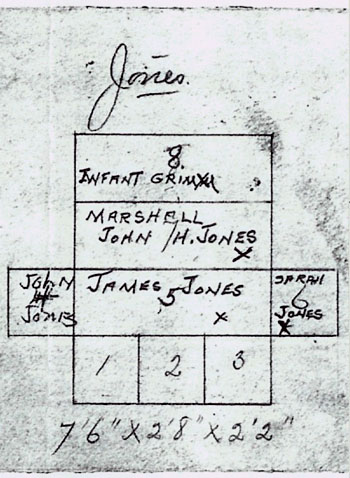 Jones.
8
INFANT GRIMM
MARSHELL
JOHN H. JONES
X
JOHN
4
JONES
JAMES JONES
5
X
SARAH
6
JONES
X
1 2 3
7'6" X 2'8" X 2'2"